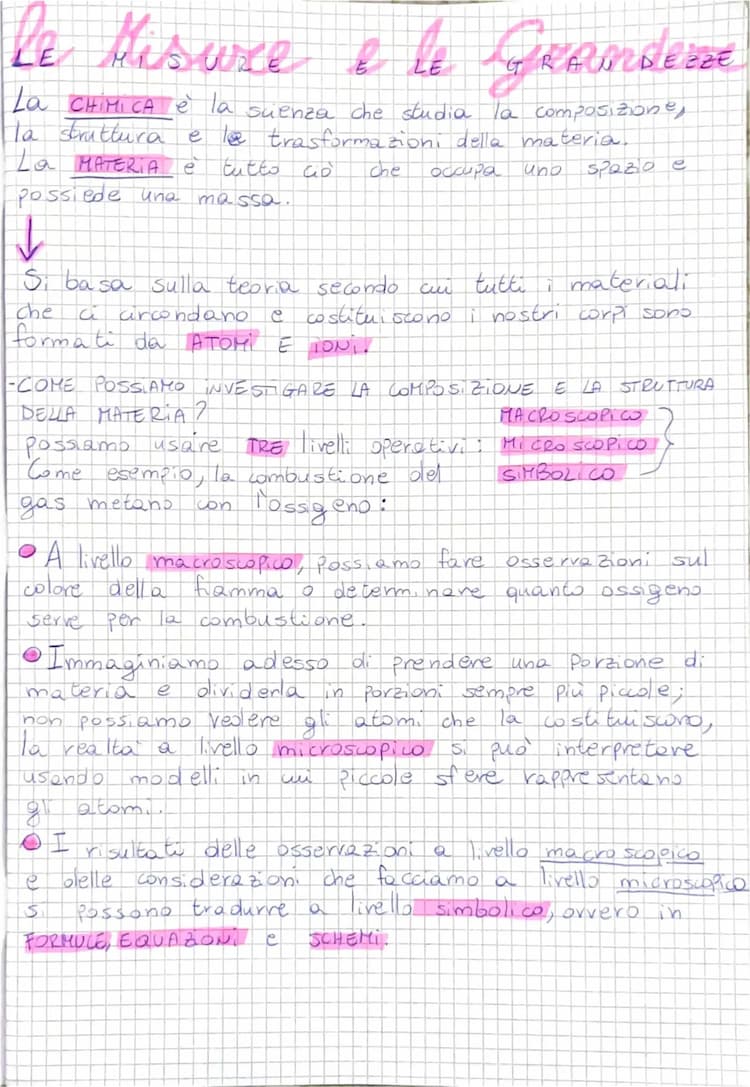 Le Misure e le Grandezze
LE MISURE E LE GRANDEZZE
La CHIMICA è la scienza che studia la composizione,
la struttura e le trasformazioni della materia.
La MATERIA è tutto ciò che occupa uno spazio e
possiede una massa.
↓
Si basa sulla teoria secondo cui tutti i materiali
che ci circondano e costituiscono i nostri corpi sono
formati da ATOMI E IONI.
-COME POSSIAMO INVESTIGARE LA COMPOSIZIONE E LA STRUTTURA
DELLA MATERIA? MACROSCOPICO
possiamo usare TRE livelli operativi: MICROSCOPICO
Come esempio, la combustione del SIMBOLICO
gas metano con l'ossigeno:
• A livello macroscopico, possiamo fare osservazioni sul
colore della fiamma o determinare quanto ossigeno
serve per la combustione.
• Immaginiamo adesso di prendere una porzione di
materia e dividerla in porzioni sempre più piccole;
non possiamo vedere gli atomi che la costituiscono,
la realtà a livello microscopico si può interpretare
usando modelli in cui piccole sfere rappresentano
gli atomi.
• I risultati delle osservazioni a livello macroscopico
e delle considerazioni che facciamo a livello microscopico
si possono tradurre a livello simbolico, ovvero in
FORMULE, EQUAZIONI e SCHEMI.